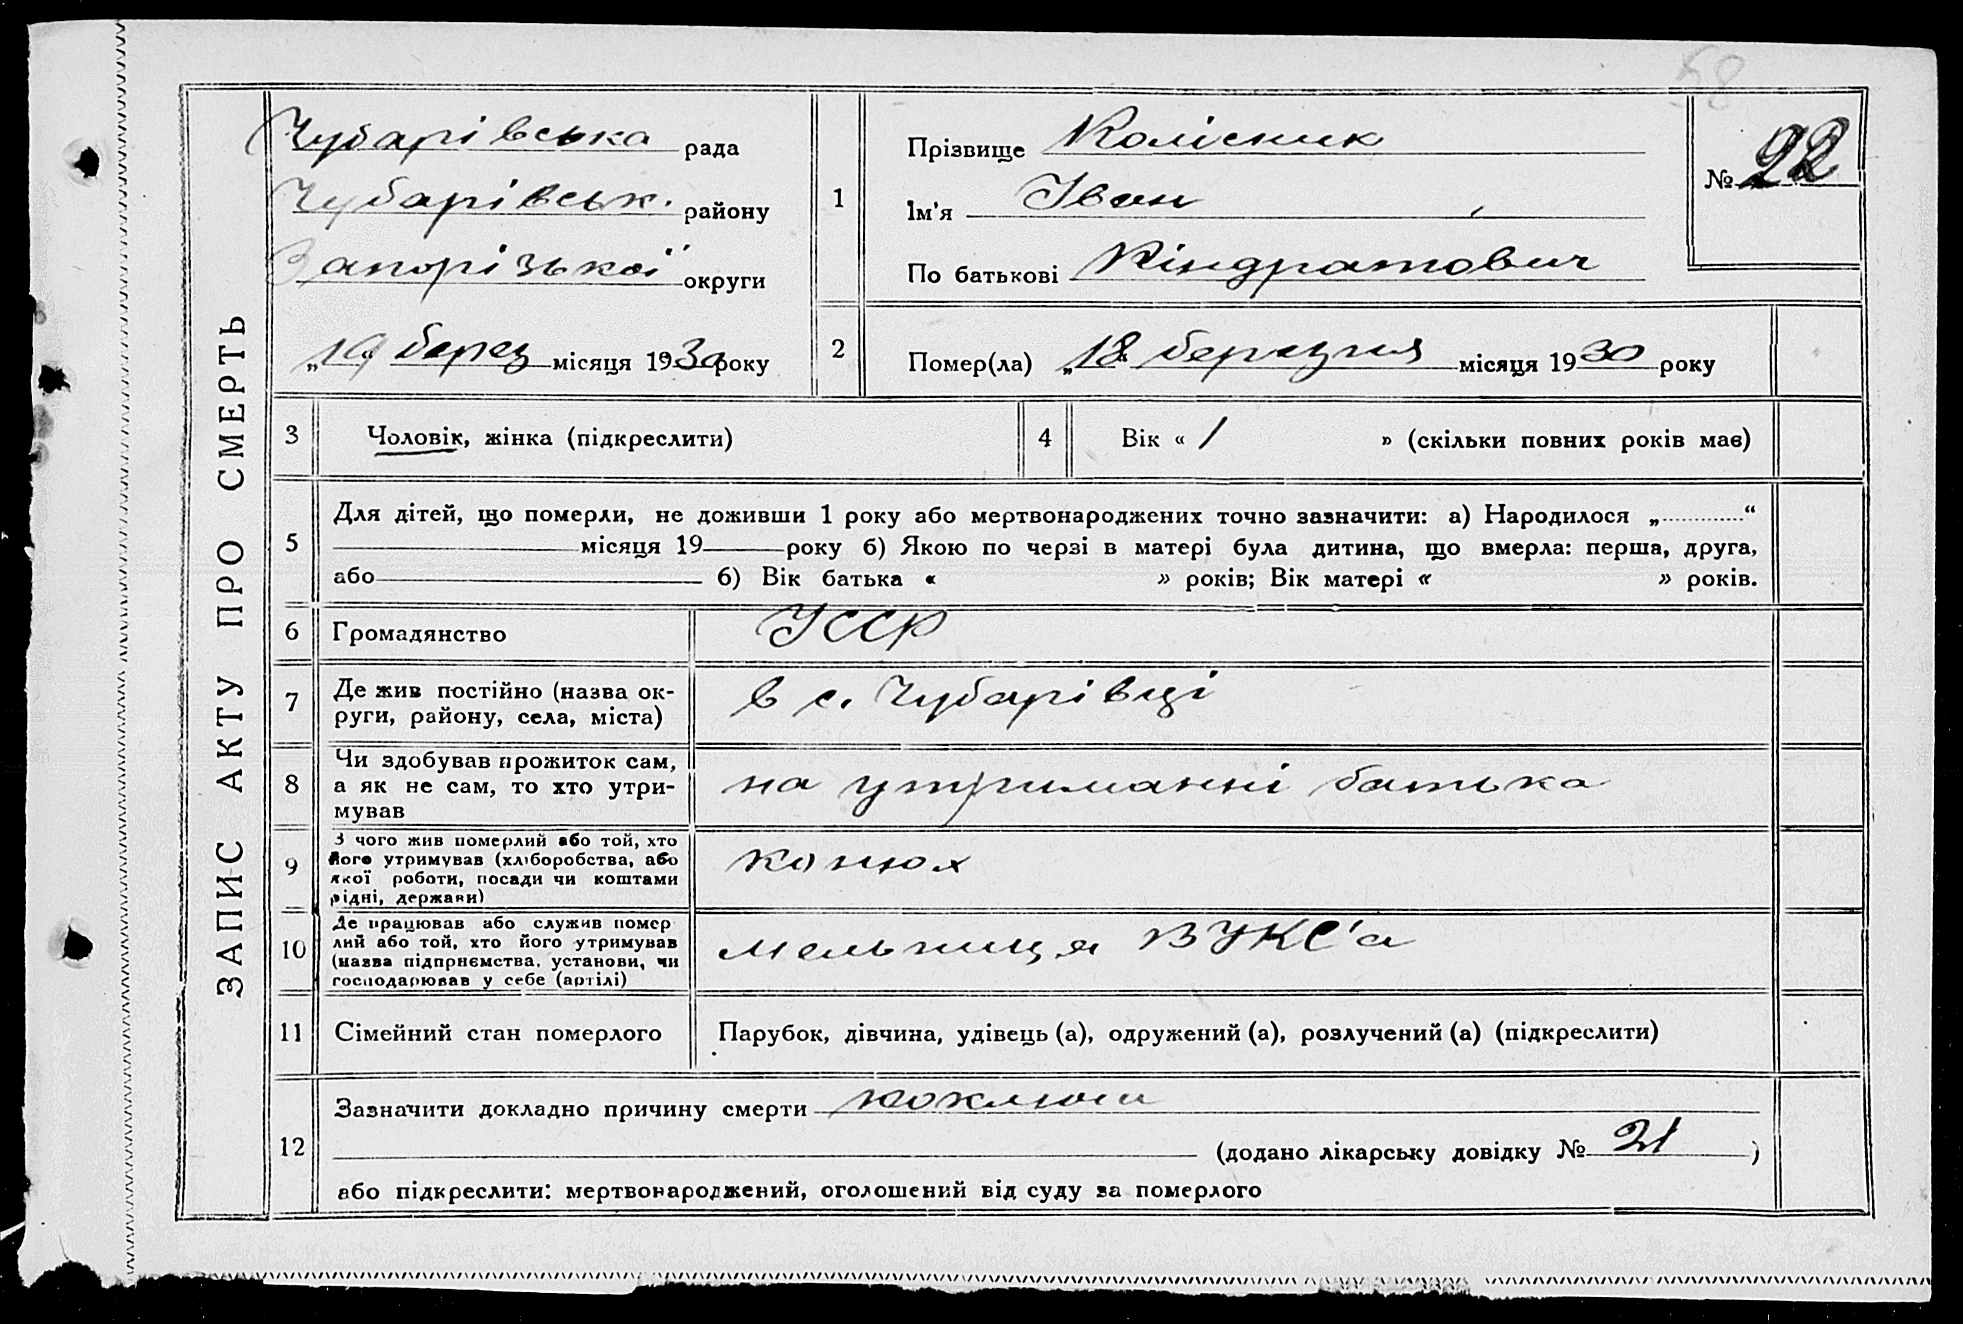 58
ЗАПИС АКТУ ПРО СМЕРТЬ
Чубарівська рада
Чубарівськ. району
Запорізької округи
„19“ берез місяця 1930 року
1
Прізвище Колісник
Ім'я Іван
По батькові Кіндратович
№ 22
2
Помер(ла) „18“ березня місяця 1930 року
3 Чоловік, жінка (підкреслити)
4 Вік « 1 » (скільки повних років має)
5
Для дітей, що померли, не доживши 1 року або мертвонароджених точно зазначити: а) Народилося „............“
місяця 19 року б) Якою по черзі в матері була дитина, що вмерла: перша, друга,
або б) Вік батька « » років; Вік матері « » років.
6 Громадянство УССР
7 Де жив постійно (назва ок-
руги, району, села, міста)
в с. Чубарівці
8
Чи здобував прожиток сам,
а як не сам, то хто утри-
мував
на утриманні батька
9
З чого жив померлий або той, хто
його утримував (хліборобства, або
якої роботи, посади чи коштами
рідні, держави)
конюх
10
Де працював або служив помер
лий або той, хто його утримував
(назва підприємства, установи, чи
господарював у себе (артілі)
мельниця ВУКС'а
11 Сімейний стан померлого Парубок, дівчина, удівець (а), одружений (а), розлучений (а) (підкреслити)
12
Зазначити докладно причину смерти коклюш
(додано лікарську довідку № 21 )
або підкреслити: мертвонароджений, оголошений від суду за померлого